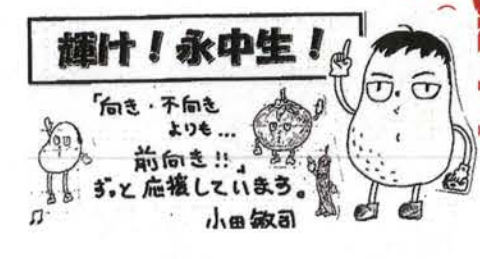 輝け！永中生！
「向き・不向き
よりも…
前向き!!」
ずっと応援しています。
小田敏司